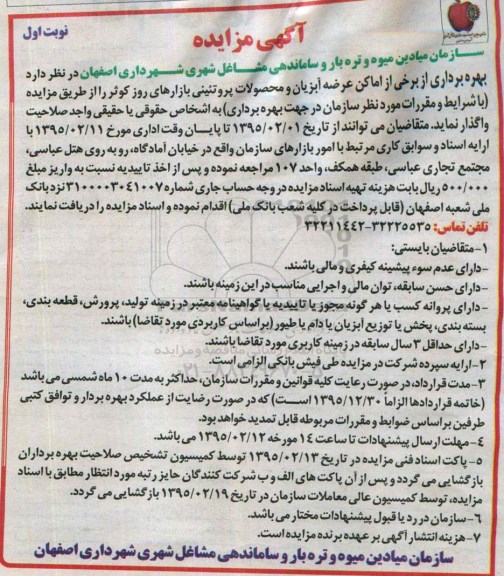 نوبت اول
آگهی مزایده
سازمان میادین میوه و تره بار و ساماندهی مشاغل شهری شهرداری اصفهان در نظر دارد
بهره برداری از برخی از اماکن عرضه آبزیان و محصولات پروتئینی بازارهای روز کوثر را از طریق مزایده
(با شرایط و مقررات مورد نظر سازمان در جهت بهره برداری) به اشخاص حقوقی یا حقیقی واجد صلاحیت
واگذار نماید. متقاضیان می توانند از تاریخ ۱۳۹۵/۰۲/۰۱ تا پایان وقت اداری مورخ ۱۳۹۵/۰۲/۱۱ با
ارایه اسناد و سوابق کاری مرتبط با امور بازارهای سازمان واقع در خیابان آمادگاه، رو به روی هتل عباسی،
مجتمع تجاری عباسی، طبقه همکف، واحد ۱۰۷ مراجعه نموده و پس از اخذ تاییدیه نسبت به واریز مبلغ
۵۰۰/۰۰۰ ریال بابت هزینه تهیه اسناد مزایده در وجه حساب جاری شماره ۳۱۰۰۰۰۳۰۴۱۰۰۷ نزد بانک
ملی شعبه اصفهان (قابل پرداخت در کلیه شعب بانک ملی) اقدام نموده و اسناد مزایده را دریافت نمایند.
تلفن تماس: ۳۲۲۲۵۵۳۵-۳۲۲۱۱۴۴۲
۱- متقاضیان بایستی:
-دارای عدم سوء پیشینه کیفری و مالی باشند.
-دارای حسن سابقه، توان مالی و اجرایی مناسب در این زمینه باشند.
-دارای پروانه کسب یا هر گونه مجوز یا تاییدیه یا گواهینامه معتبر در زمینه تولید، پرورش، قطعه بندی،
بسته بندی، پخش یا توزیع آبزیان یا دام یا طیور (براساس کاربردی مورد تقاضا) باشند.
-دارای حداقل ۳ سال سابقه در زمینه کاربری مورد تقاضا باشند.
۲-ارایه سپرده شرکت در مزایده طی فیش بانکی الزامی است.
۳-مدت قرارداد، در صورت رعایت کلیه قوانین و مقررات سازمان، حداکثر به مدت ۱۰ ماه شمسی می باشد
(خاتمه قراردادها الزاماً ۱۳۹۵/۱۲/۳۰ است) که در صورت رضایت از عملکرد بهره بردار و توافق کتبی
طرفین بر اساس ضوابط و مقررات مربوطه قابل تمدید خواهد بود.
۴-مهلت ارسال پیشنهادات تا ساعت ۱۴ مورخه ۱۳۹۵/۰۲/۱۲ می باشد.
۵- پاکت اسناد فنی مزایده در تاریخ ۱۳۹۵/۰۲/۱۳ توسط کمیسیون تشخیص صلاحیت بهره برداران
بازگشایی می گردد و پس از آن پاکت های الف و ب شرکت کنندگان حایز رتبه مورد انتظار مطابق با اسناد
مزایده، توسط کمیسیون عالی معاملات سازمان در تاریخ ۱۳۹۵/۰۲/۱۹ بازگشایی می گردد.
۶-سازمان در رد یا قبول پیشنهادات مختار می باشد.
۷-هزینه انتشار آگهی بر عهده برنده مزایده است.
سازمان میادین میوه و تره بار و ساماندهی مشاغل شهری شهرداری اصفهان